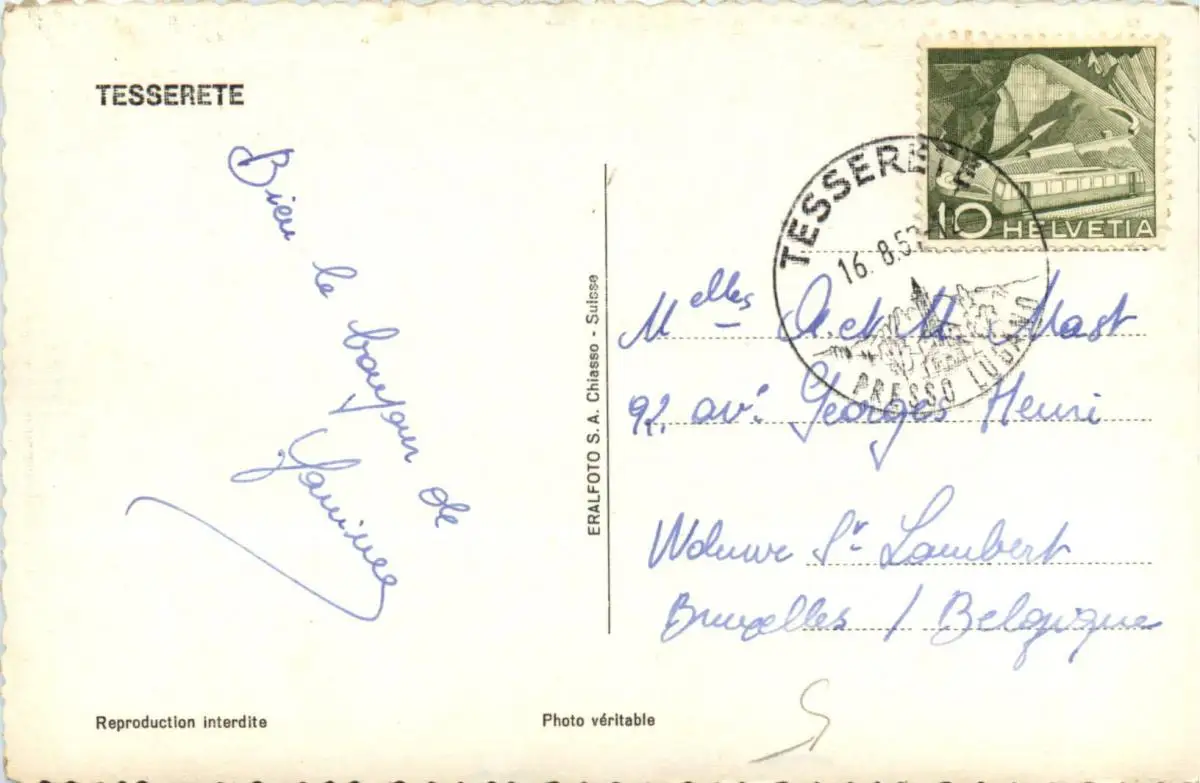 TESSERETE
Bien le
bonjour de
Janinee
ERALFOTO S. A. Chiasso - Suisse
Reproduction interdite
Photo véritable
10 HELVETIA
TESSERETE
16. 8.5
PRESSO LUGANO
Melles A. et M. Mast
92, av. Georges Henri
Woluwe St Lambert
Bruxelles / Belgique